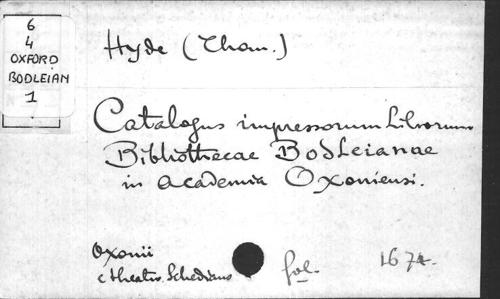 6
4
OXFORD
BODLEIAN
1
Hyde (Thom.)
Catalogus impressorum Librorum
Bibliothecae Bodleianae
in Academia Oxoniensi.
Oxonii
e theatro Sheldiano fol. 1674.